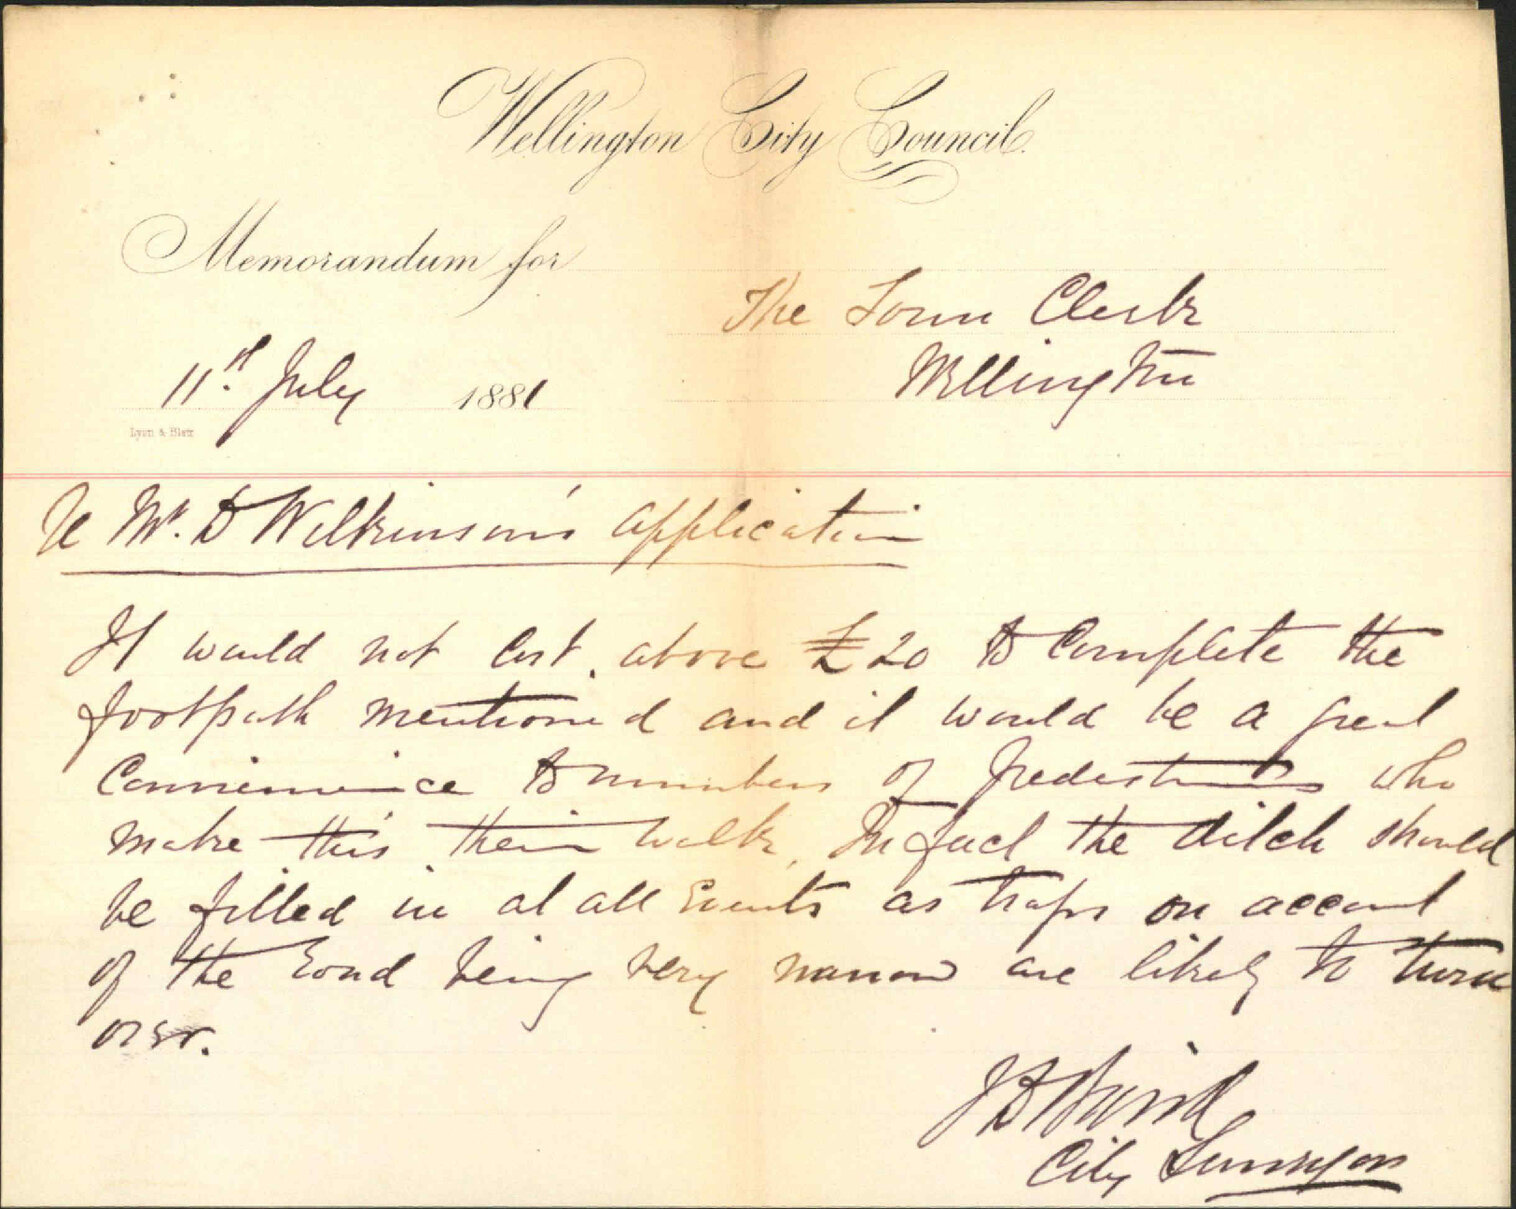 Wellington City Council.
Memorandum for
The Town Clerk
Wellington
11th July 1881
Lyon & Blair
Re Mr. D Wilkinson's application
It would not cost above £20 to complete the
footpath mentioned and it would be a great
Convenience to numbers of pedestrians who
make this their walk. In fact the ditch should
be filled in at all Events as traps on account
of the road being very narrow are likely to turn
over.
J D Baird
City Surveyor